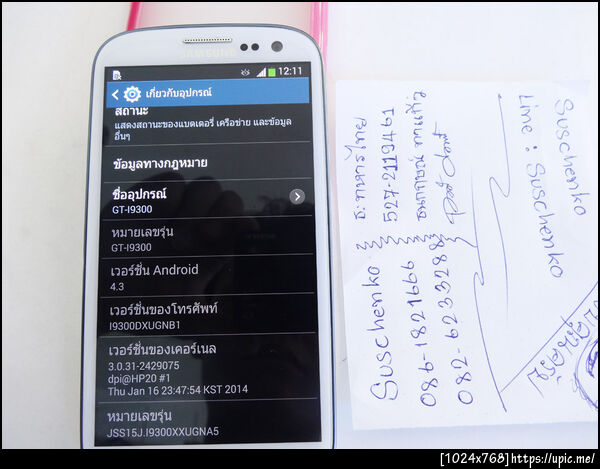 SAMSUNG
12:11
เกี่ยวกับอุปกรณ์
สถานะ
แสดงสถานะของแบตเตอรี่ เครือข่าย และข้อมูล
อื่นๆ
ข้อมูลทางกฎหมาย
ชื่ออุปกรณ์
GT-I9300
หมายเลขรุ่น
GT-I9300
เวอร์ชั่น Android
4.3
เวอร์ชั่นของโทรศัพท์
I9300DXUGNB1
เวอร์ชั่นของเคอร์เนล
3.0.31-2429075
dpi@HP20 #1
Thu Jan 16 23:47:54 KST 2014
หมายเลขรุ่น
JSS15J.I9300XXUGNA5
Suschenko
Line : Suschenko
ธ.ทหารไทย
527-2119461
Suschenko
086-1821666
082-6233288
[1024x768]https://upic.me/